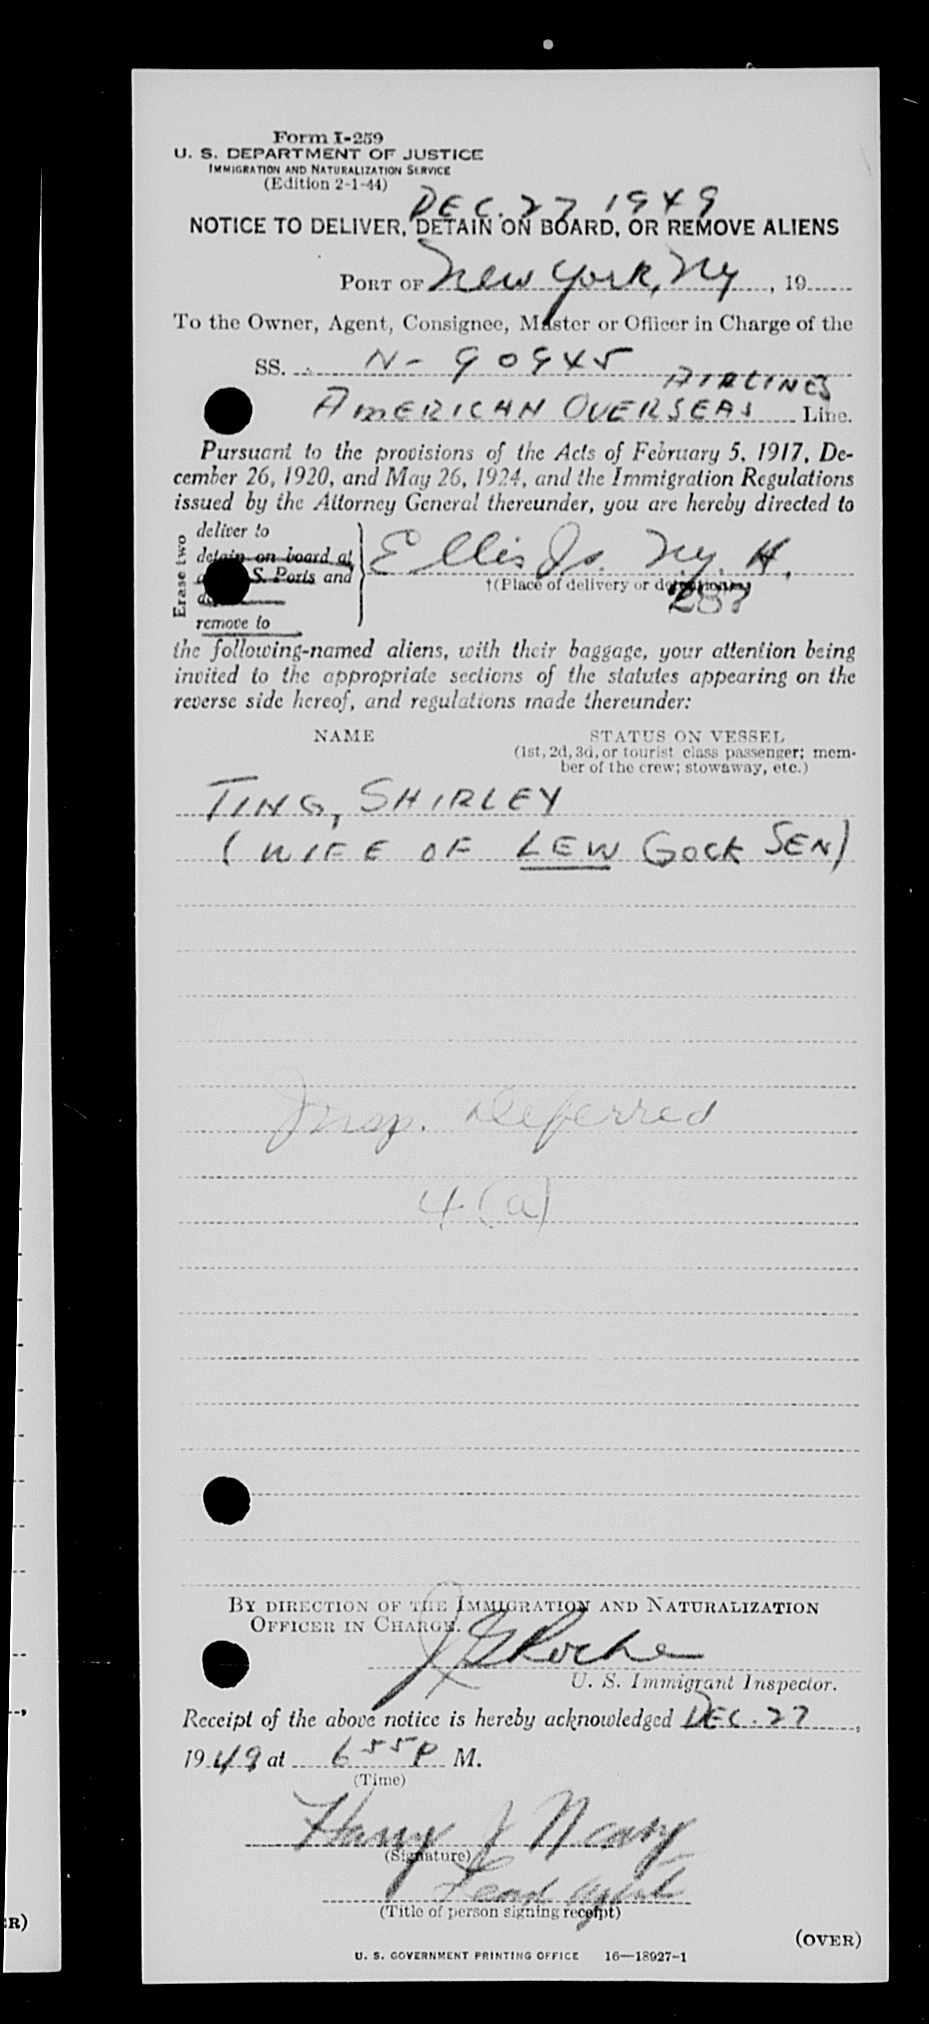 Form I-259
U. S. DEPARTMENT OF JUSTICE
IMMIGRATION AND NATURALIZATION SERVICE
(Edition 2-1-44)
DEC. 27 1949
NOTICE TO DELIVER, DETAIN ON BOARD, OR REMOVE ALIENS
PORT OF New York, Ny, 19
To the Owner, Agent, Consignee, Master or Officer in Charge of the
SS. N-90945
AIRLINES
AMERICAN OVERSEAS Line.
Pursuant to the provisions of the Acts of February 5, 1917, De-
cember 26, 1920, and May 26, 1924, and the Immigration Regulations
issued by the Attorney General thereunder, you are hereby directed to
Erase two
deliver to
detain on board at
S. Ports and
remove to
Ellis Is. Ny. H.
†(Place of delivery or detention)
the following-named aliens, with their baggage, your attention being
invited to the appropriate sections of the statutes appearing on the
reverse side hereof, and regulations made thereunder:
NAME
STATUS ON VESSEL
(1st, 2d, 3d, or tourist class passenger; mem-
ber of the crew; stowaway, etc.)
TING, SHIRLEY
(WIFE OF LEW GOCK SEN)
Insp. Deferred
4(a)
BY DIRECTION OF THE IMMIGRATION AND NATURALIZATION
OFFICER IN CHARGE.
J G Roche
U. S. Immigrant Inspector.
Receipt of the above notice is hereby acknowledged DEC. 27,
1949 at 655P M.
(Time)
Harry J Neary
(Signature)
Lead Agent
(Title of person signing receipt)
(OVER)
U. S. GOVERNMENT PRINTING OFFICE 16—18927-1